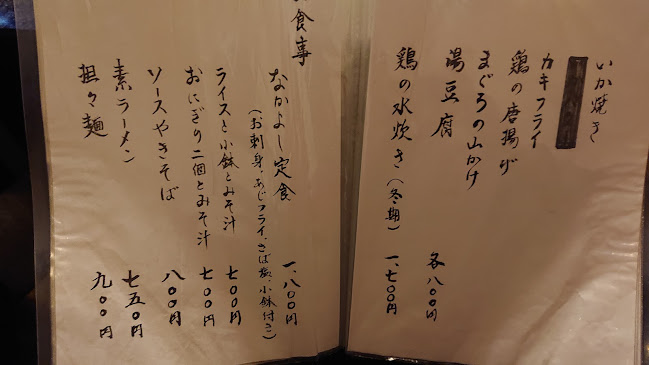 いか焼き
カキフライ
鶏の唐揚げ
まぐろの山かけ
湯豆腐
各八〇〇円
鶏の水炊き(冬期) 一、七〇〇円
食事
なかよし定食 一、八〇〇円
(お刺身、あじフライ、さば塩、小鉢付き)
ライスと小鉢とみそ汁 七〇〇円
おにぎり二個とみそ汁 七〇〇円
ソースやきそば 八〇〇円
素ラーメン 七五〇円
担々麺 九〇〇円